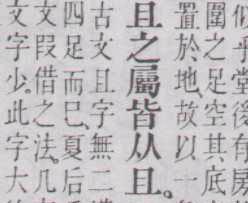 乎堂後
圍之足空其
置於地、故以一底
且之屬皆从且。
古文且字、無二
四足而已、夏后
文叚借之法、几
文字少、此字大